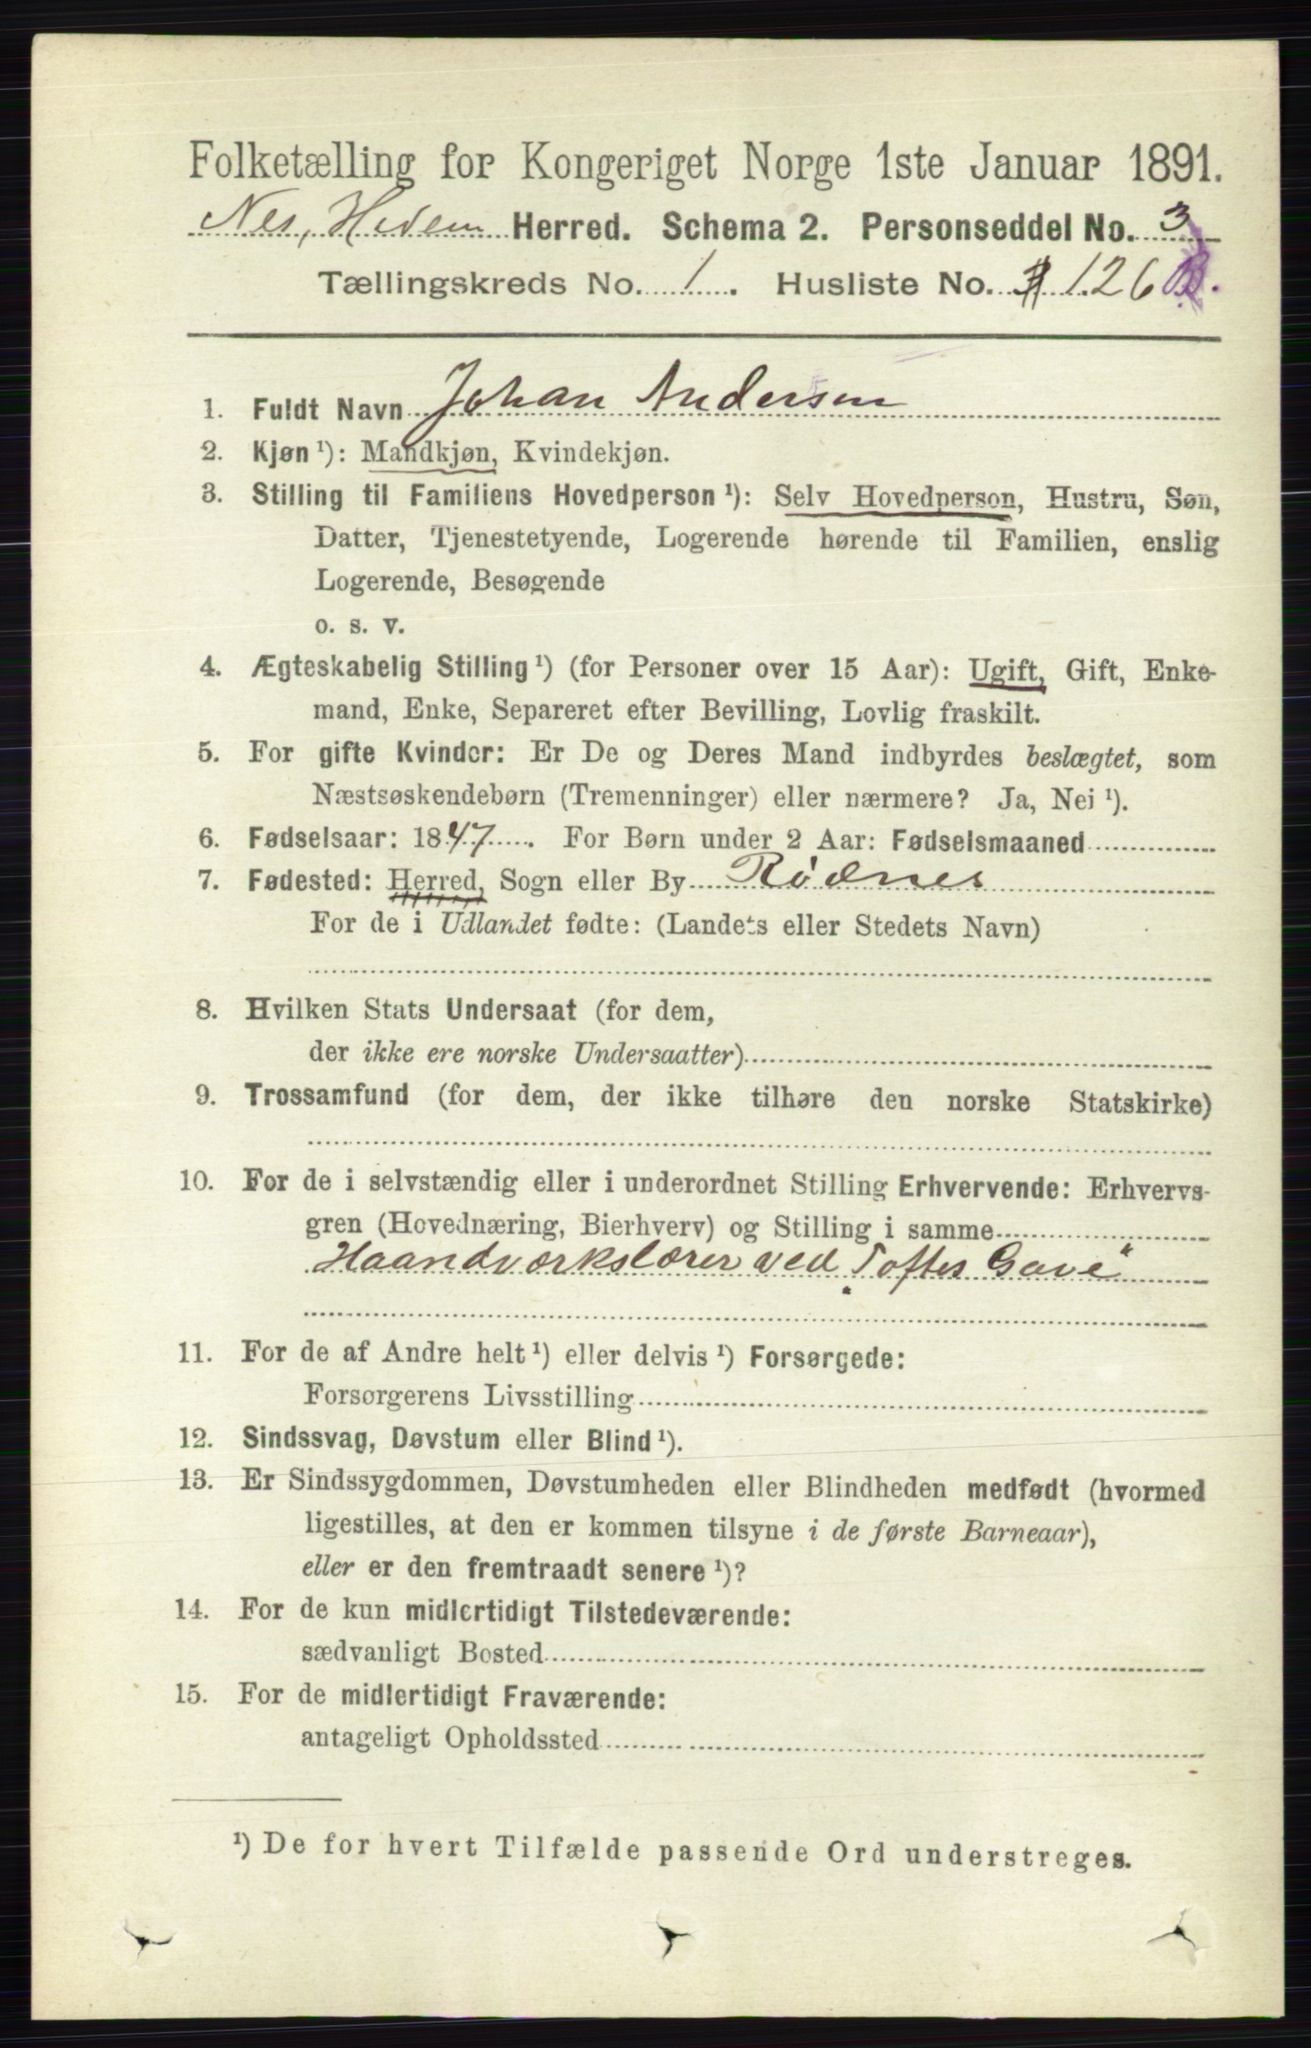 Folketælling for Kongeriget Norge 1ste Januar 1891.
Nes, Hedem Herred. Schema 2. Personseddel No. 3
Tællingskreds No. 1. Husliste No. 126 B.
1. Fuldt Navn Johan Andersen
2. Kjøn ¹): Mandkjøn, Kvindekjøn.
3. Stilling til Familiens Hovedperson ¹): Selv Hovedperson, Hustru, Søn,
Datter, Tjenestetyende, Logerende hørende til Familien, enslig
Logerende, Besøgende
o. s. v.
4. Ægteskabelig Stilling ¹) (for Personer over 15 Aar): Ugift, Gift, Enke-
mand, Enke, Separeret efter Bevilling, Lovlig fraskilt.
5. For gifte Kvinder: Er De og Deres Mand indbyrdes beslægtet, som
Næstsøskendebørn (Tremenninger) eller nærmere? Ja, Nei ¹).
6. Fødselsaar: 1847. For Børn under 2 Aar: Fødselsmaaned
7. Fødested: Herred, Sogn eller By Rødnes
For de i Udlandet fødte: (Landets eller Stedets Navn)
8. Hvilken Stats Undersaat (for dem,
der ikke ere norske Undersaatter)
9. Trossamfund (for dem, der ikke tilhøre den norske Statskirke)
10. For de i selvstændig eller i underordnet Stilling Erhvervende: Erhvervs-
gren (Hovednæring, Bierhverv) og Stilling i samme
Haandværkslærer ved „Toftes Gave“
11. For de af Andre helt ¹) eller delvis ¹) Forsørgede:
Forsørgerens Livsstilling
12. Sindssvag, Døvstum eller Blind ¹).
13. Er Sindssygdommen, Døvstumheden eller Blindheden medfødt (hvormed
ligestilles, at den er kommen tilsyne i de første Barneaar),
eller er den fremtraadt senere ¹)?
14. For de kun midlertidigt Tilstedeværende:
sædvanligt Bosted
15. For de midlertidigt Fraværende:
antageligt Opholdssted
¹) De for hvert Tilfælde passende Ord understreges.